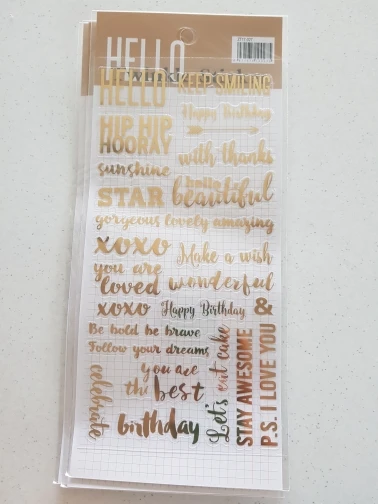 HELLO
HELLO
KEEP SMILING
Happy Birthday
HIP HIP
HOORAY
with thanks
sunshine
hello
STAR
beautiful
gorgeous lovely amazing
xoxo
Make a wish
you are
loved
wonderful
xoxo
Happy Birthday
&
Be bold be brave
Follow your dreams
you are
the best
celebrate
birthday
Let's eat cake
STAY AWESOME
P.S. I LOVE YOU